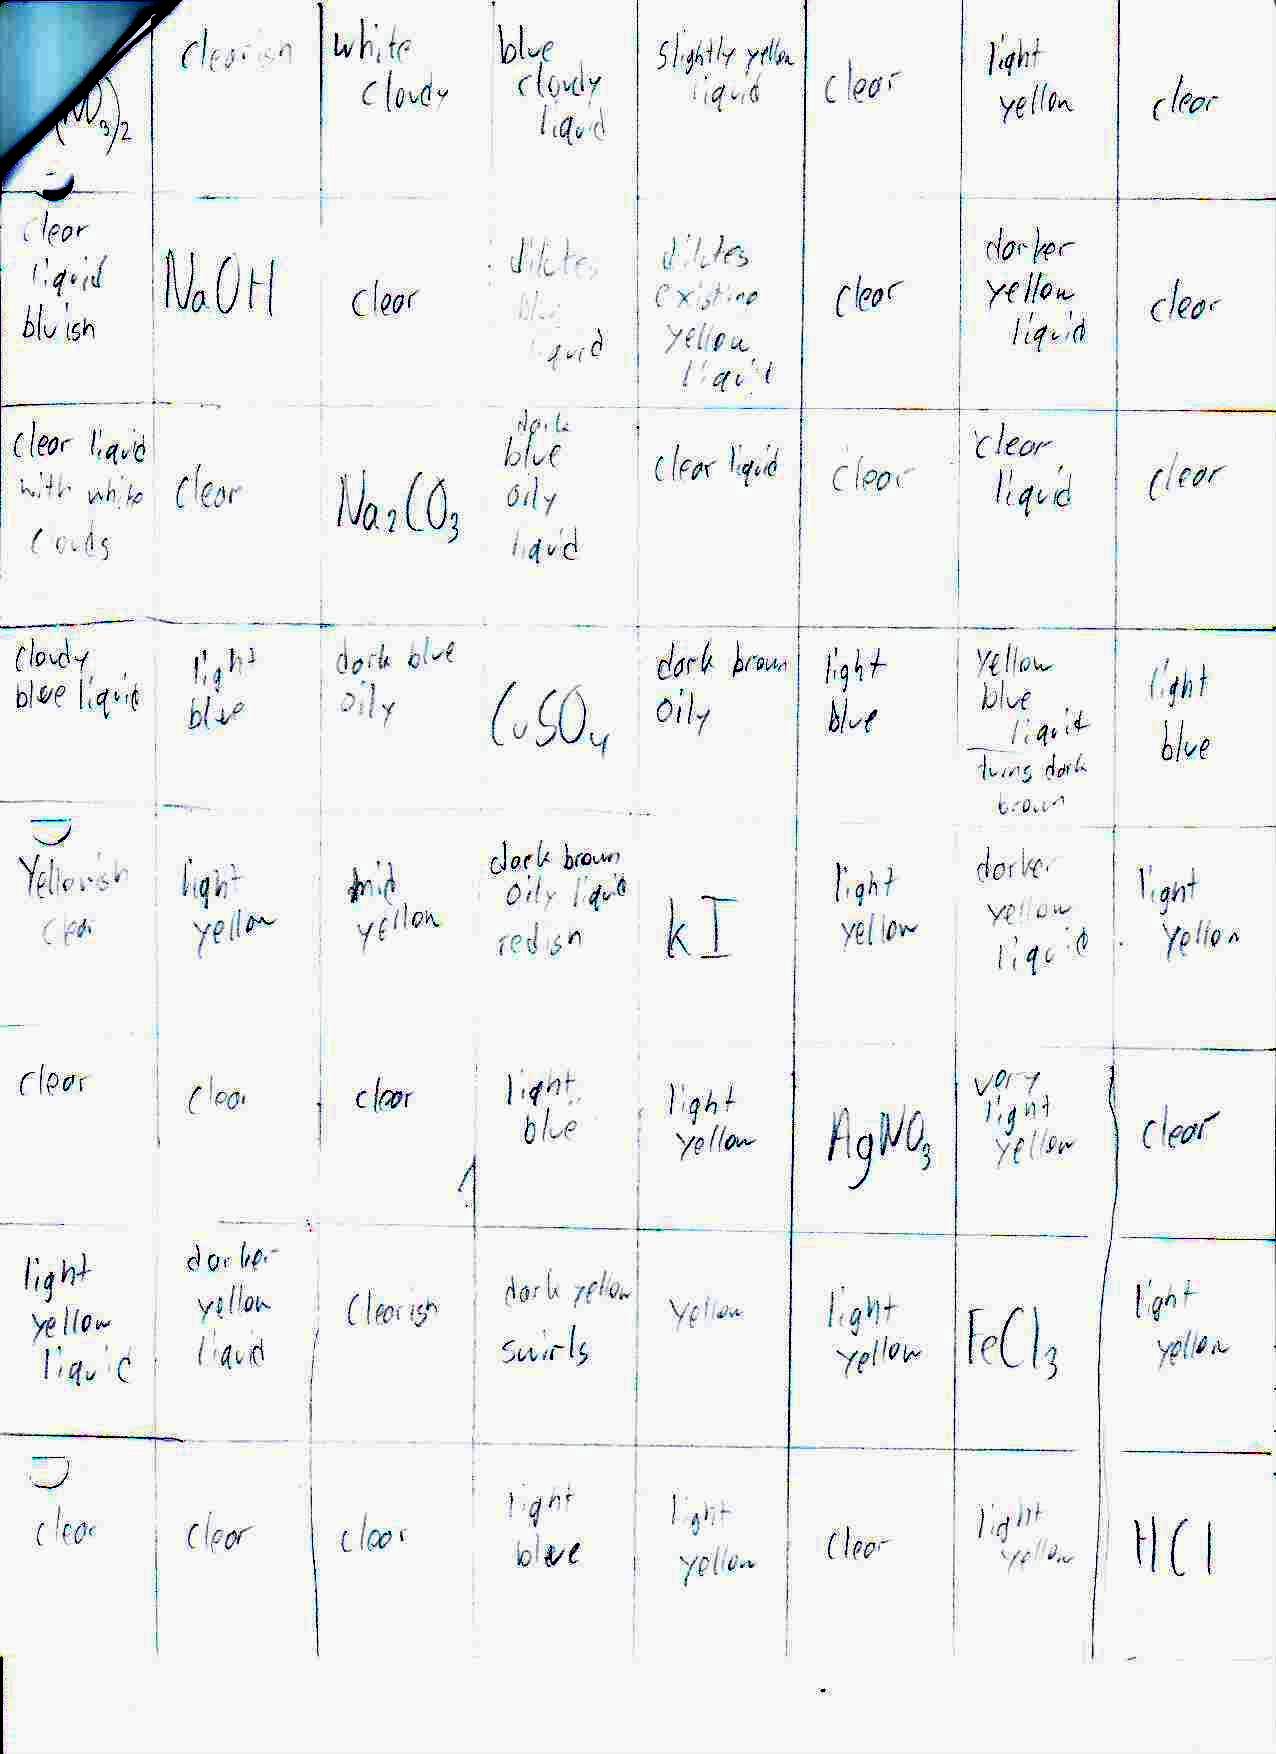 clearish
white
cloudy
blue
cloudy
liquid
slightly yellow
liquid
clear
light
yellow
clear
NO3)2
clear
liquid
bluish
NaOH
clear
dilutes
blue
liquid
dilutes
existing
yellow
liquid
clear
darker
yellow
liquid
clear
clear liquid
with white
clouds
clear
Na2CO3
dark
blue
oily
liquid
clear liquid
clear
clear
liquid
clear
cloudy
blue liquid
light
blue
dark blue
oily
CuSO4
dark brown
oily
light
blue
yellow
blue
liquid
turns dark
brown
light
blue
Yellowish
clear
light
yellow
mid
yellow
dark brown
oily liquid
redish
kI
light
yellow
darker
yellow
liquid
light
yellow
clear
clear
clear
light
blue
light
yellow
AgNO3
very
light
yellow
clear
light
yellow
liquid
darker
yellow
liquid
Clearish
dark yellow
swirls
yellow
light
yellow
FeCl3
light
yellow
clear
clear
clear
light
blue
light
yellow
clear
light
yellow
HCl